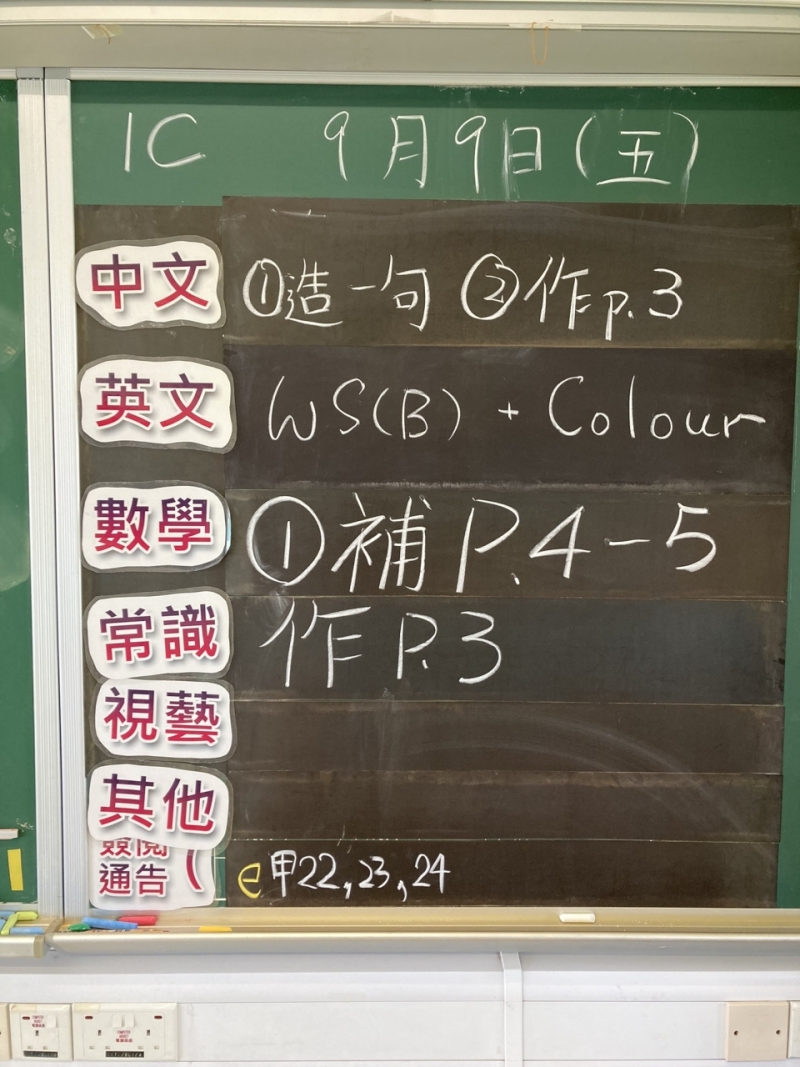 1C 9月9日(五)
中文 ①造一句 ②作p.3
英文 WS(B) + Colour
數學 ①補P.4-5
常識 作P.3
視藝
其他
簽閱
通告( e甲22,23,24